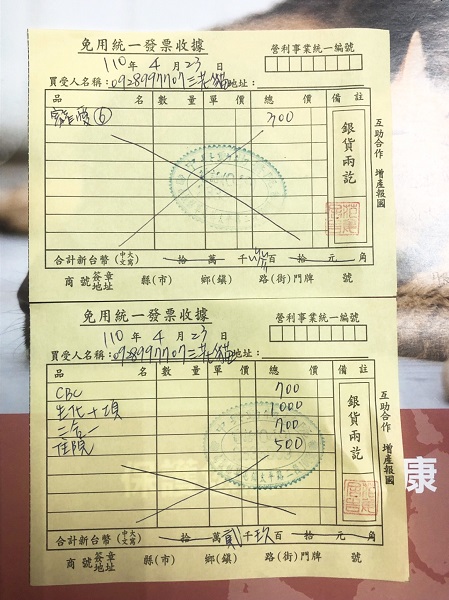 免用統一發票收據
營利事業統一編號
110年 4 月 23 日
買受人名稱：0928997707三花貓地址：
品 名 數量 單價 總 價 備註
寵愛⑥ 700
銀貨兩訖
互助合作 增產報國
合計新台幣(中文大寫) 拾 萬 千 百 拾 元 角
商號簽章地址 縣(市) 鄉(鎮) 路(街)門牌 號
免用統一發票收據
營利事業統一編號
110年 4 月 23 日
買受人名稱：0928997707三花貓地址：
品 名 數量 單價 總 價 備註
CBC 700
生化十項 1000
三合一 700
住院 500
銀貨兩訖
互助合作 增產報國
合計新台幣(中文大寫) 拾 萬貳千玖百 拾 元 角
商號簽章地址 縣(市) 鄉(鎮) 路(街)門牌 號
康